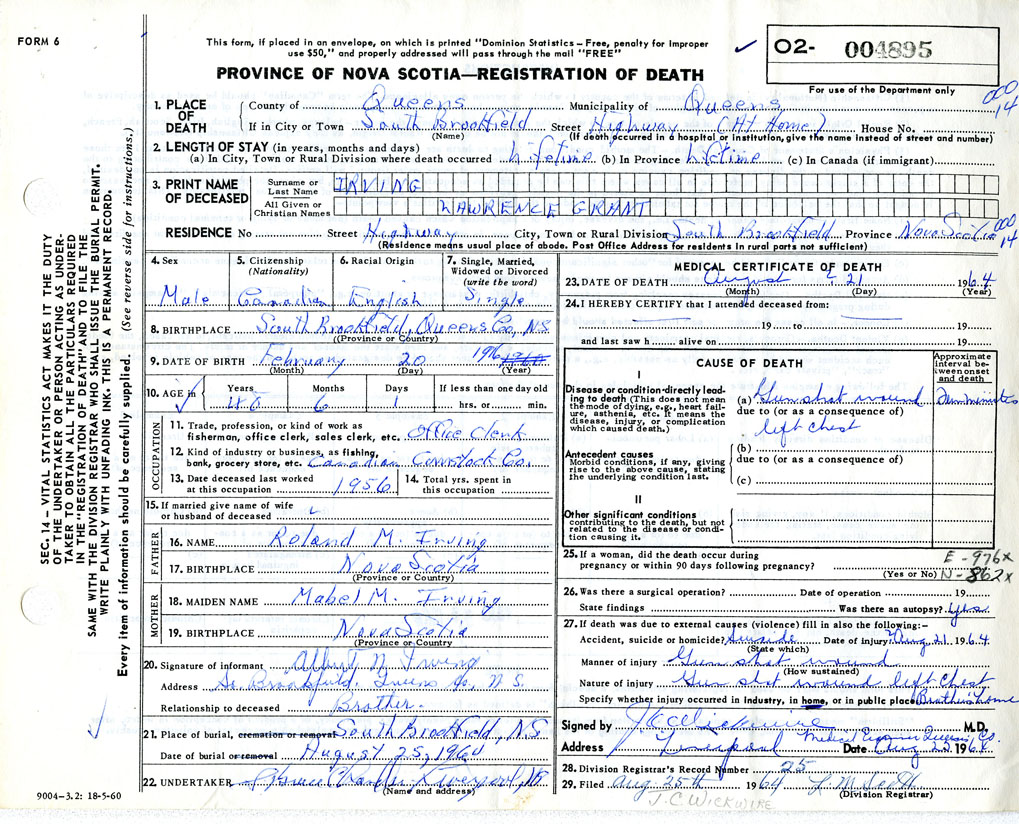 FORM 6
This form, if placed in an envelope, on which is printed "Dominion Statistics—Free, penalty for improper
use $50," and properly addressed will pass through the mail "FREE"
✓ 02- 004895
PROVINCE OF NOVA SCOTIA—REGISTRATION OF DEATH
For use of the Department only
000
14
1. PLACE OF DEATH County of Queens Municipality of Queens
If in City or Town South Brookfield Street Highway (At Home) House No.
(Name) (If death occurred in a hospital or institution, give the name instead of street and number)
2. LENGTH OF STAY (in years, months and days)
(a) In City, Town or Rural Division where death occurred lifetime (b) In Province lifetime (c) In Canada (if immigrant)
3. PRINT NAME OF DECEASED Surname or Last Name IRVING
All Given or Christian Names LAWRENCE GRANT
RESIDENCE No Street Highway City, Town or Rural Division South Brookfield Province Nova Scotia 000 14
(Residence means usual place of abode. Post Office Address for residents in rural parts not sufficient)
4. Sex
Male
5. Citizenship
(Nationality)
Canadian
6. Racial Origin
English
7. Single, Married,
Widowed or Divorced
(write the word)
Single
8. BIRTHPLACE South Brookfield, Queens Co, N.S.
(Province or Country)
9. DATE OF BIRTH February 20 1916
(Month) (Day) (Year)
10. AGE in Years Months Days If less than one day old
✓ 48 6 1 hrs. or min.
OCCUPATION
11. Trade, profession, or kind of work as
fisherman, office clerk, sales clerk, etc. Office Clerk
12. Kind of industry or business, as fishing,
bank, grocery store, etc. Canadian Comstock Co.
13. Date deceased last worked
at this occupation 1956
14. Total yrs. spent in
this occupation
15. If married give name of wife
or husband of deceased
FATHER
16. NAME Roland M. Irving
17. BIRTHPLACE Nova Scotia
(Province or Country)
MOTHER
18. MAIDEN NAME Mabel M. Irving
19. BIRTHPLACE Nova Scotia
(Province or Country)
20. Signature of informant Albert N. Irving
Address So. Brookfield, Queens Co, N.S.
Relationship to deceased Brother.
21. Place of burial, cremation or removal South Brookfield, N.S
Date of burial or removal August 25, 1964
22. UNDERTAKER Liverpool, NS
(Name and address)
9004-3.2: 18-5-60
MEDICAL CERTIFICATE OF DEATH
23. DATE OF DEATH August 21 1964
(Month) (Day) (Year)
24. I HEREBY CERTIFY that I attended deceased from:
19 to 19
and last saw h alive on 19
CAUSE OF DEATH
Approximate
interval be-
tween onset
and death
I
Disease or condition directly lead-
ing to death (This does not mean
the mode of dying, e.g., heart fail-
ure, asthenia, etc. It means the
disease, injury, or complication
which caused death.)
(a) Gun shot wound
due to (or as a consequence of)
left chest
minutes
Antecedent causes
Morbid conditions, if any, giving
rise to the above cause, stating
the underlying condition last.
(b)
due to (or as a consequence of)
(c)
II
Other significant conditions
contributing to the death, but not
related to the disease or condi-
tion causing it.
25. If a woman, did the death occur during
pregnancy or within 90 days following pregnancy?
(Yes or No)
E-976x
N-862x
26. Was there a surgical operation? Date of operation 19
State findings Was there an autopsy? yes.
27. If death was due to external causes (violence) fill in also the following:-
Accident, suicide or homicide? Suicide Date of injury? Aug 21, 1964
(State which)
Manner of injury Gun shot wound
(How sustained)
Nature of injury Gun shot wound left chest
Specify whether injury occurred in industry, in home, or in public place Brothers home
Signed by J C Wickwire M.D.
Medical Examiner Queens Co.
Address Liverpool Date Aug 22 1964
28. Division Registrar's Record Number 25
29. Filed Aug 25th 1964 L M Seeth
(Division Registrar)
J.C WICKWIRE
SEC. 14 – VITAL STATISTICS ACT MAKES IT THE DUTY
OF THE UNDERTAKER OR PERSON ACTING AS UNDER-
TAKER TO OBTAIN ALL THE PARTICULARS REQUIRED
IN THE "REGISTRATION OF DEATH" AND TO FILE THE
SAME WITH THE DIVISION REGISTRAR WHO SHALL ISSUE THE BURIAL PERMIT.
WRITE PLAINLY WITH UNFADING INK. THIS IS A PERMANENT RECORD.
Every item of information should be carefully supplied. (See reverse side for instructions.)